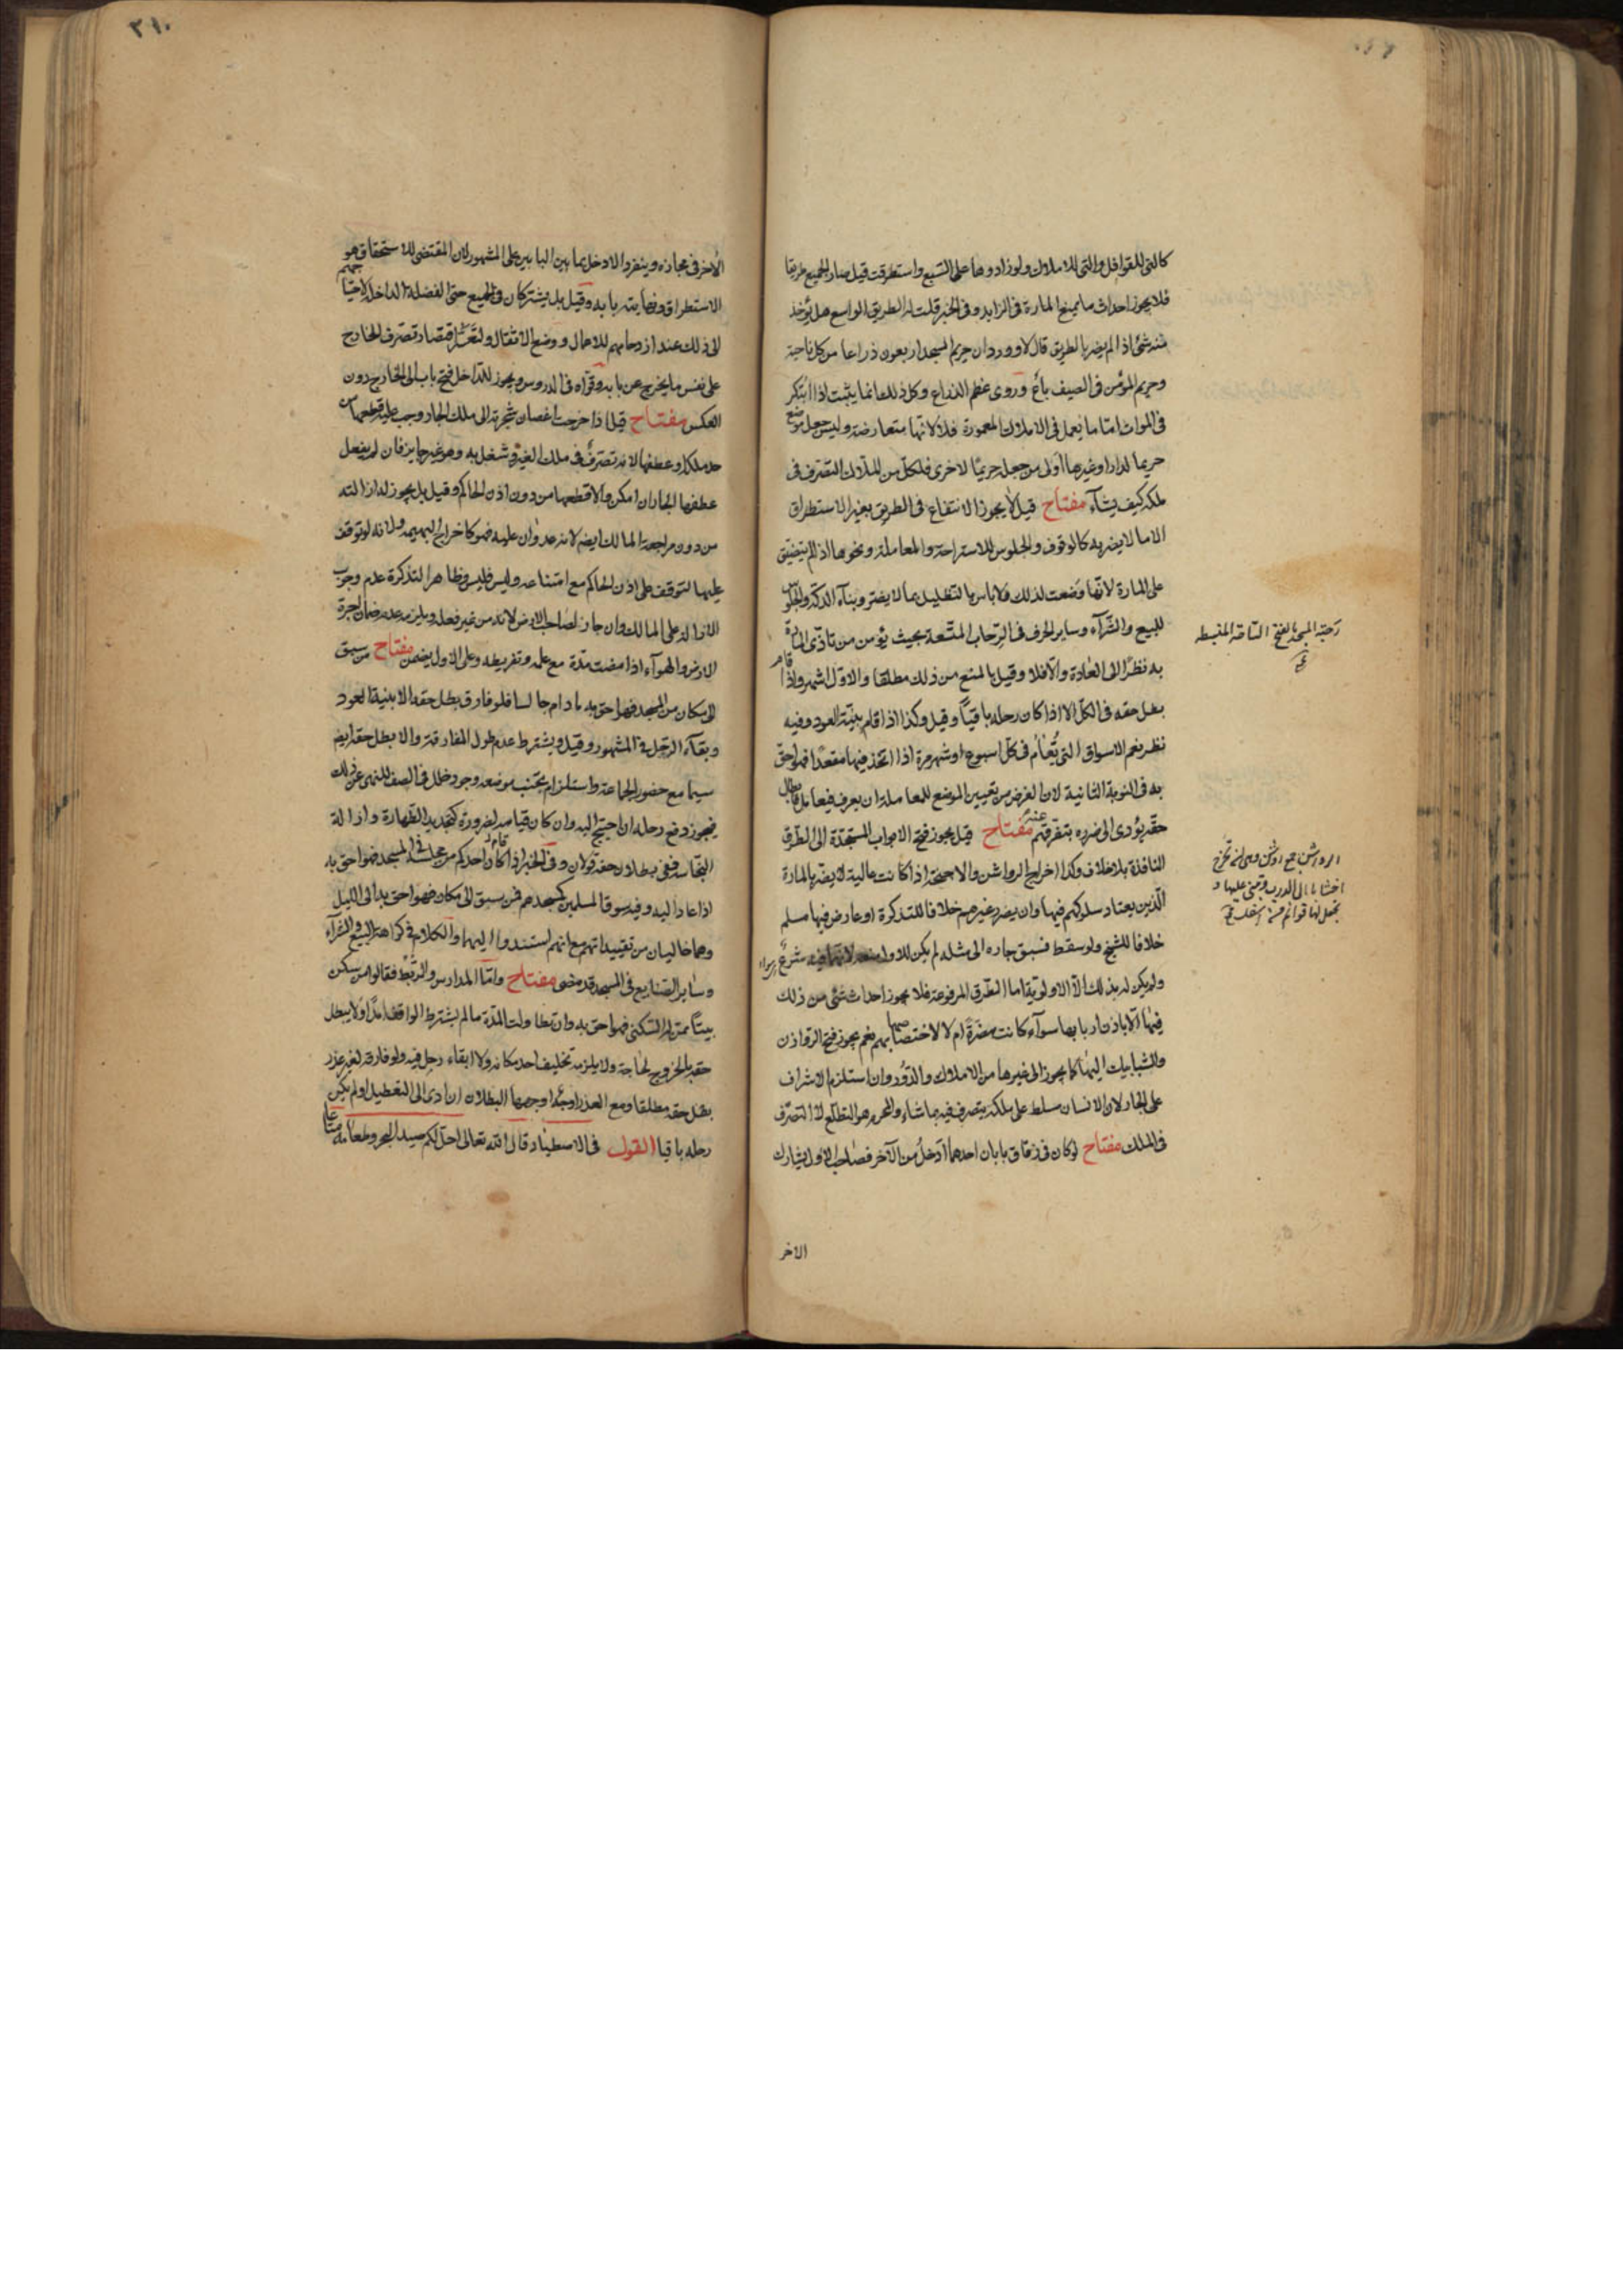 كالتي للقوافل والتي للاملاك ولو زادوها على السبع واستطرقت قيل صار الجميع طريقا
فلا يجوز احداث ما يمنع المارة في الزايد وفي الخبر قلت له الطريق الواسع هل يؤخذ
منه شئ اذا لم يضر بالطريق قال لا وورد ان حريم المسجد اربعون ذراعا من كل ناحية
وحريم المؤمن في الصيف باع وروى عظم الذراع وكل ذلك انما يثبت اذا ابتكر
في الموات اما ما يعمل في الاملاك المعمورة فلا لانها متعارضة وليس جعل موضع
حريما لدار او غيرها اولى من جعله حريما لاخرى فلكل من الملاك التصرف في
ملكه كيف يشآء مفتاح قيل لا يجوز الانتفاع في الطريق بغير الاستطراق
الا ما لا يضر به كالوقوف والجلوس للاستراحة والمعاملة ونحوها اذا لم يتضيق
على المارة لانها وضعت لذلك فلا باس بالتظليل بما لا يضر وبنآء الدكة والجلوس
للبيع والشرآء وساير الحرف في الرحاب المتسعة بحيث يؤمن من تاذى المارة
به نظرا الى العادة والا فلا وقيل بالمنع من ذلك مطلقا والاول اشهر واذا قام
بطل حقه في الكل الا اذا كان رحله باقيا وقيل وكذا اذا قام بنية العود وفيه
نظر نعم الاسواق التي تقام في كل اسبوع او شهر مرة اذا اتخذ فيها مقعدا فهو احق
به في النوبة الثانية لان الغرض من تعيين الموضع للمعاملة ان يعرف فيعامل فابطال
حقه يؤدى الى ضرره بتفرقهم عنه مفتاح قيل يجوز فتح الابواب المستجدة الى الطرق
النافذة بلا خلاف وكذا اخراج الرواشن والاجنحة اذا كانت عالية لا يضر بالمارة
الذين يعتاد سلوكهم فيها وان يضر غيرهم خلافا للتذكرة او عارض فيها مسلم
خلافا للشيخ ولو سقط فسبق جاره الى مثله لم يكن للاول منعه لانهما فيه شرع سواء
ولم يكن له بذلك الا الاولوية اما الطرق المرفوعة فلا يجوز احداث شئ من ذلك
فيها الا باذن اربابها سوآء كانت مضرة ام لا لاختصاصها بهم نعم يجوز فتح الروازن
والشبابيك اليها كما يجوز الى غيرها من الاملاك والدور وان استلزم الاشراف
على الجار لان الانسان مسلط على ملكه يتصرف فيه بما شاء والمحرم هو التطلع لا التصرف
في الملك مفتاح لو كان في زقاق بابان احدهما ادخل من الآخر فصاحب الاول يشارك
الاخر
رحبة المسجد بالفتح الساحة المنبسطة
الرواشن جمع روشن وهي ان تخرج
اخشابا الى الدرب وتبني عليها و
تجعل لها قوائم من اسفل
٢١٠
الاخر في مجازه وينفرد الادخل بما بين البابين على المشهور لان المقتضى للاستحقاق هو
الاستطراق ونهايته بابه وقيل بل يشتركان في الجميع حتى الفضلة الداخلة لاحتياجهم
الى ذلك عند ازدحامهم للاحمال ووضع الاثقال ولتعسر اقتصار تصرف الخارج
على نفس ما يخرج عن بابه وقواه في الدروس ويجوز للداخل فتح باب الى الخارج دون
العكس مفتاح قيل اذا خرجت اغصان شجرته الى ملك الجار وجب عليه قطعها من
حد ملكه او عطفها لانه تصرف في ملك الغير وشغل به وهو غير جايز فان لم يفعل
عطفها الجار ان امكن والا قطعها من دون اذن الحاكم وقيل بل يجوز له ازالته
من دون مراجعة المالك ايضا لانه عدوان عليه فهو كاخراج البهيمة ولانه لو توقف
عليها لتوقف على اذن الحاكم مع امتناعه وليس فليس وظاهر التذكرة عدم وجوب
الازالة على المالك وان جاز لصاحب الارض لانه من غير فعله ويلزمه عدم ضمان اجرة
الارض والهوآء اذا مضت مدة مع علمه وتفريطه وعلى الاول يضمن مفتاح من سبق
الى مكان من المسجد فهو احق به ما دام جالسا فلو فارق بطل حقه الا بنية العود
وبقآء الرحل في المشهور وقيل ويشترط عدم طول المفارقة والا بطل حقه ايضا
سيما مع حضور الجماعة واستلزام تجنب موضعه وجود خلل في الصف للنهى عن ذلك
فيجوز رفع رحله ان احتيج اليه وان كان قيامه لضرورة كتجديد الطهارة وازالة
النجاسة ففي بطلان حقه قولان وفي الخبر اذا قام احدكم من مجلسه في المسجد فهو احق به
اذا عاد اليه وفيه سوق المسلمين كمسجدهم فمن سبق الى مكان فهو احق به الى الليل
وهما خاليان من تقييداتهم مع انهم استندوا اليهما والكلام في كراهة البيع والشرآء
وساير الصنايع في المسجد قد مضى مفتاح واما المدارس والربط فقالوا من سكن
بيتا ممن له السكنى فهو احق به وان تطاولت المدة ما لم يشترط الواقف امدا ولا يبطل
حقه بالخروج لحاجة ولا يلزمه تخليف احد مكانه ولا ابقاء رحل فيه ولو فارق لغير عذر
بطل حقه مطلقا ومع العذر اوجه اوجهها البطلان ان ادى الى التعطيل او لم يكن
رحله باقيا القول في الاصطياد قال الله تعالى احل لكم صيد البحر وطعامه متاعا